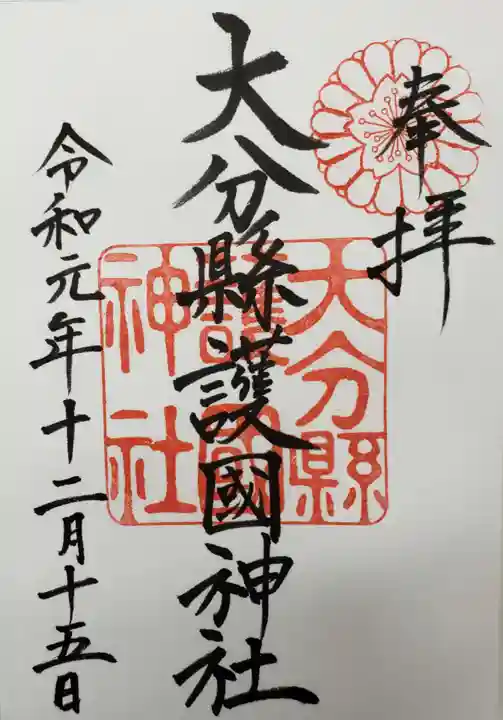 奉拝
大分縣護國神社
大分縣護國神社
令和元年十二月十五日